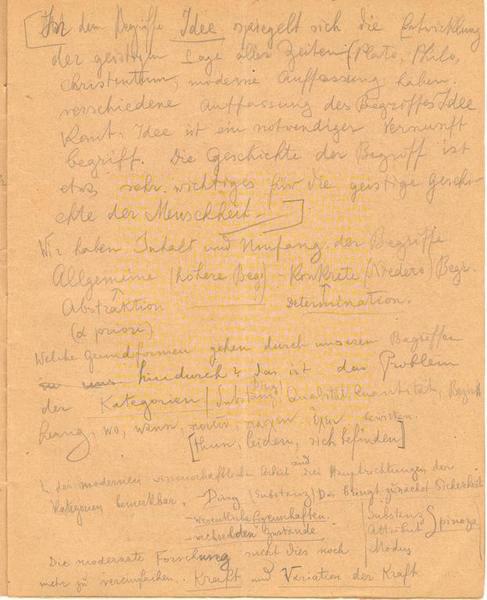 [In dem Begriffe Idee spiegelt sich die Entwicklung
der geistigen Lage aller Zeiten (Plato, Philo,
Christentum, moderne Auffassung haben
verschiedene Auffassung des Begriffes Idee
Kant: Idee ist ein notwendiger Vernunft
begriff. Die Geschichte der Begriff ist
etwas sehr wichtiges für die geistige Geschi-
chte der Menschheit.]
Wir haben Inhalt und Umfang der Begriffe
Allgemeine (höhere Beg) - Konkrete (Niedere) Begr.
Abstraktion Determination.
(a priori)
Welche Grundformen gehen durch unseren Begriffen
hindurch? das ist das Problem
der Kategorien (Substanz, Qualität, Quantität,
Ding
wo, wann,
[thun, leiden, sich befinden]
der modernen wissenschaftlichen Arbeit sind drei Hauptrichtungen der
Kategorien bemerkbar. Ding (Substanz) Das bringt zunächst Sicherheit
- wesentliche Eigenschaften.
- wechselnden Zustände
Substanz
Attribut
Modus
Spinoza
Die modernste Forschung sucht dies noch
mehr zu vereinfachen. Kraft und Variation der Kraft